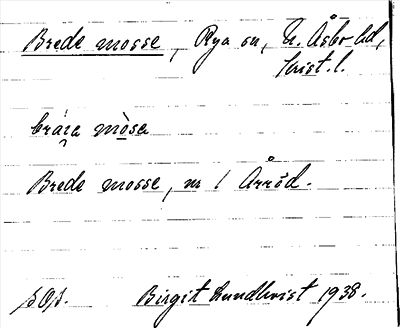 Brede mosse, Rya sn, N. Åsbo hd,
Krist. l.
bräza mòsa
Brede mosse, nr 1 Årröd.
Birgit Lundkvist 1938.